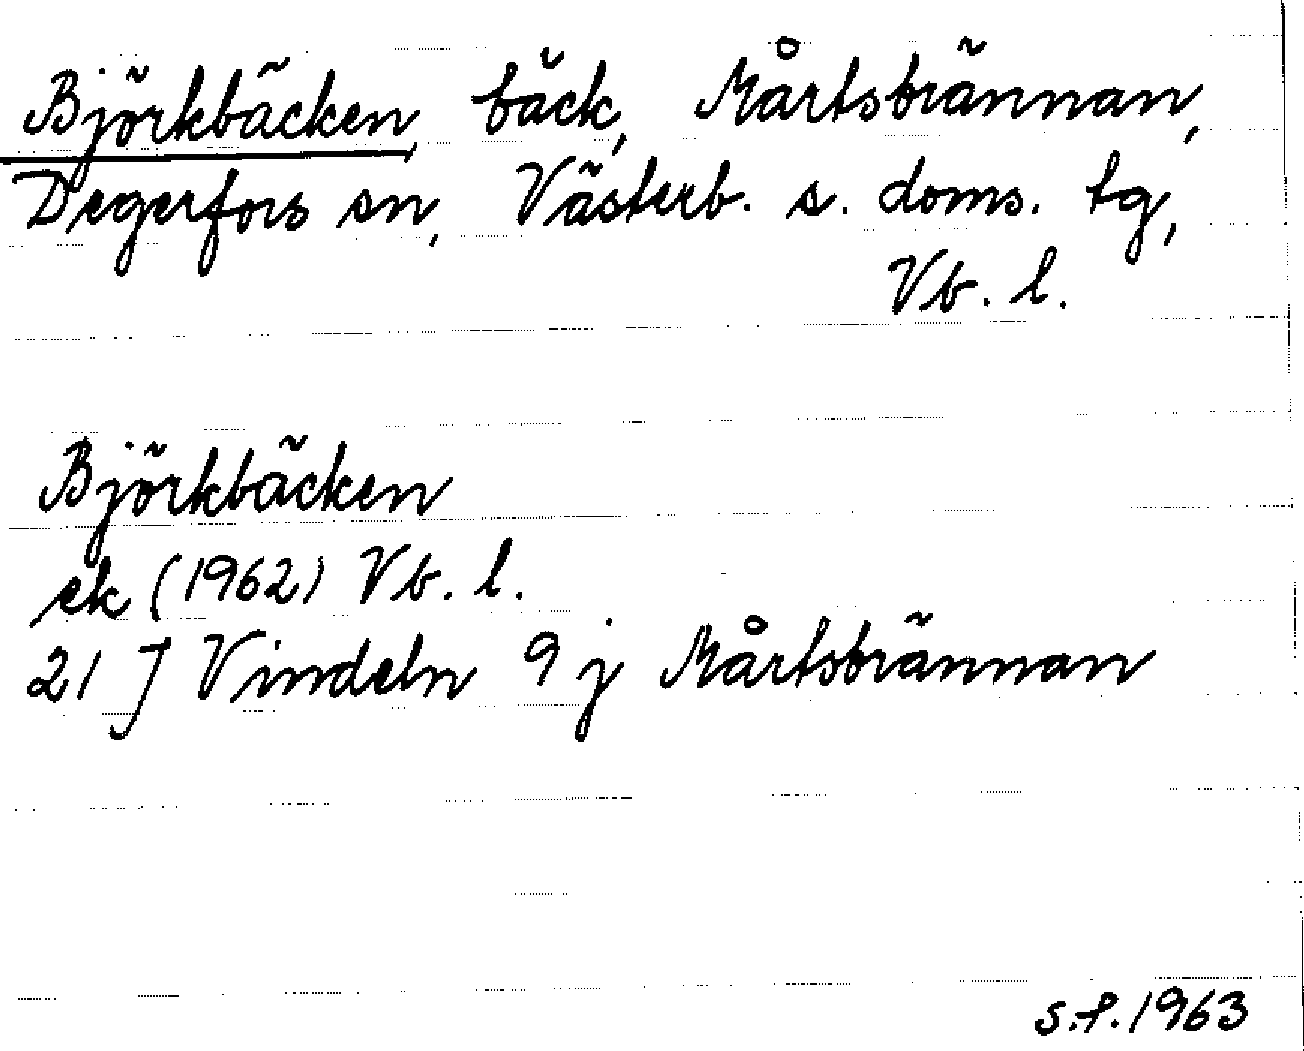 Björkbäcken, bäck, Mårtsbrännan,
Degerfors sn, Västerb. s. doms. tg,
Vb. l.
Björkbäcken
ek (1962) Vb. l.
21 J Vindeln 9 j Mårtsbrännan
s.f. 1963